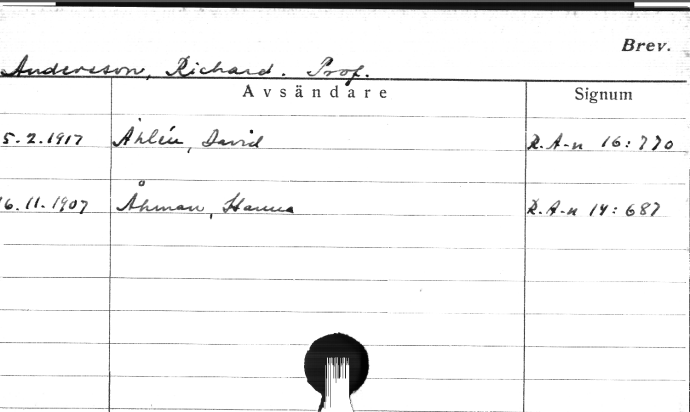 Brev.
Andersson, Richard. Prof.
Avsändare Signum
5.2.1917 Åhlén, David R. A-n 16:770
16.11.1907 Åhman, Hanna R. A-n 14:687